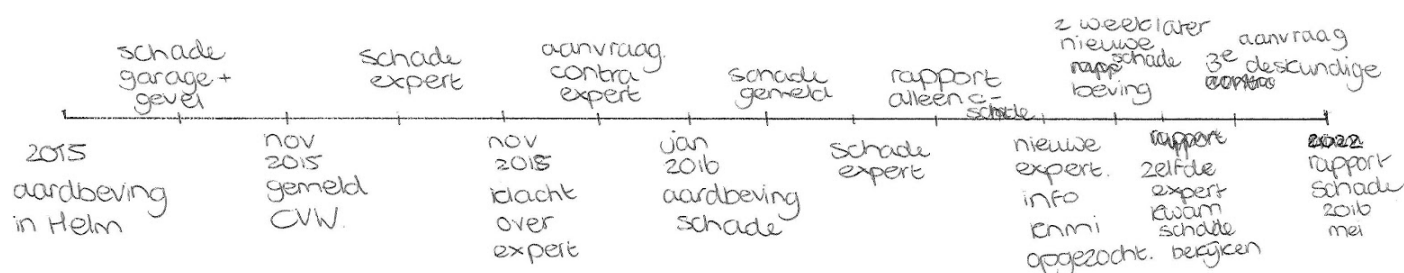 schade
garage +
gevel
schade
expert
aanvraag
contra
expert
schade
gemeld
rapport
alleen c-
schade
2 week later
nieuwe
schade
beving
aanvraag
3e deskundige
2015
aardbeving
in Helm
nov
2015
gemeld
CVW.
nov
2015
klacht
over
expert
jan
2016
aardbeving
schade
schade
expert
nieuwe
expert.
info
knmi
opgezocht.
rapport
zelfde
expert
kwam
schade
bekijken
2022
rapport
schade
2016
mei